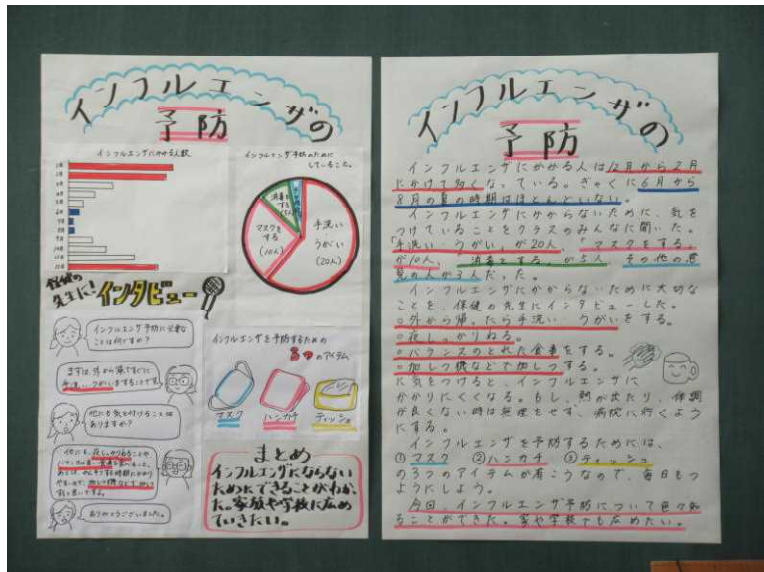 インフルエンザの
予防
インフルエンザにかかる人数
1月
2月
3月
4月
5月
6月
7月
8月
9月
10月
11月
12月
インフルエンザ予防のために
していること。
手洗い
うがい
(20人)
マスクを
する
(10人)
消毒を
する
(5人)
保健の
先生に!インタビュー
インフルエンザ予防に必要な
ことは何ですか?
まずは、外から帰ってすぐに
手洗い、うがいをすることです。
他にも気を付けることは
ありますか?
他にも、夜しっかりねることや
ありがとうございました。
インフルエンザを予防するための
3つのアイテム
マスク
ハンカチ
ティッシュ
まとめ
インフルエンザにならない
ためにできることがわか
った。家族や学校に広め
ていきたい。
インフルエンザの
予防
インフルエンザにかかる人は12月から2月
にかけて多くなっている。ぎゃくに6月から
8月の夏の時期はほとんどいない。
インフルエンザにかからないために、気を
つけていることをクラスのみんなに聞いた。
「手洗い・うがい」が20人、「マスクをする」
が10人、「消毒をする」が5人、その他の意
見の人が3人だった。
インフルエンザにかからないために大切な
ことを、保健の先生にインタビューした。
○外から帰ったら手洗い、うがいをする。
○夜しっかりねる。
○バランスのとれた食事をする。
○加しつ機などで加しつする。
に気をつけると、インフルエンザに
かかりにくくなる。もし、熱が出たり、体調
が良くない時は無理をせず、病院に行くよう
にする。
インフルエンザを予防するためには、
①マスク ②ハンカチ ③ティッシュ
の3つのアイテムが有こうなので、毎日もつ
ようにしよう。
今回、インフルエンザ予防について色々知
ることができた。家や学校でも広めたい。